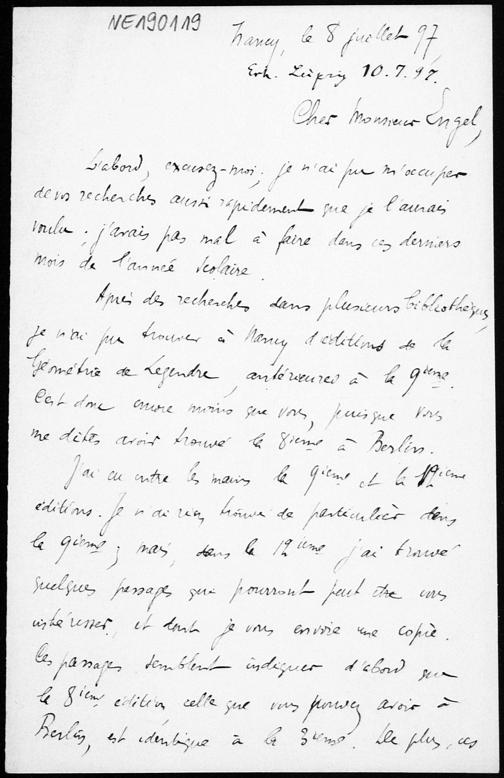 NE190119
Nancy, le 8 juillet 97
Erh. Leipzig 10.7.97.
Cher Monsieur Engel,
D'abord, excusez-moi; je n'ai pu m'occuper
de vos recherches aussi rapidement que je l'aurais
voulu; j'avais pas mal à faire dans ces derniers
mois de l'année scolaire.
Après des recherches dans plusieurs bibliothèques,
je n'ai pu trouver à Nancy d'éditions de la
Géométrie de Legendre, antérieures à la 9ieme.
C'est donc encore moins que vous, puisque vous
me dites avoir trouvé la 8ieme à Berlin.
J'ai eu entre les mains la 9ieme et la 12ieme
éditions. Je n'ai rien trouvé de particulier dans
la 9ieme; mais, dans la 12ieme j'ai trouvé
quelques passages qui pourront peut être vous
intéresser, et dont je vous envoie une copie.
Ces passages semblent indiquer d'abord que
la 8ieme édition celle que vous pouvez avoir à
Berlin, est identique à la 3ieme. De plus, ces